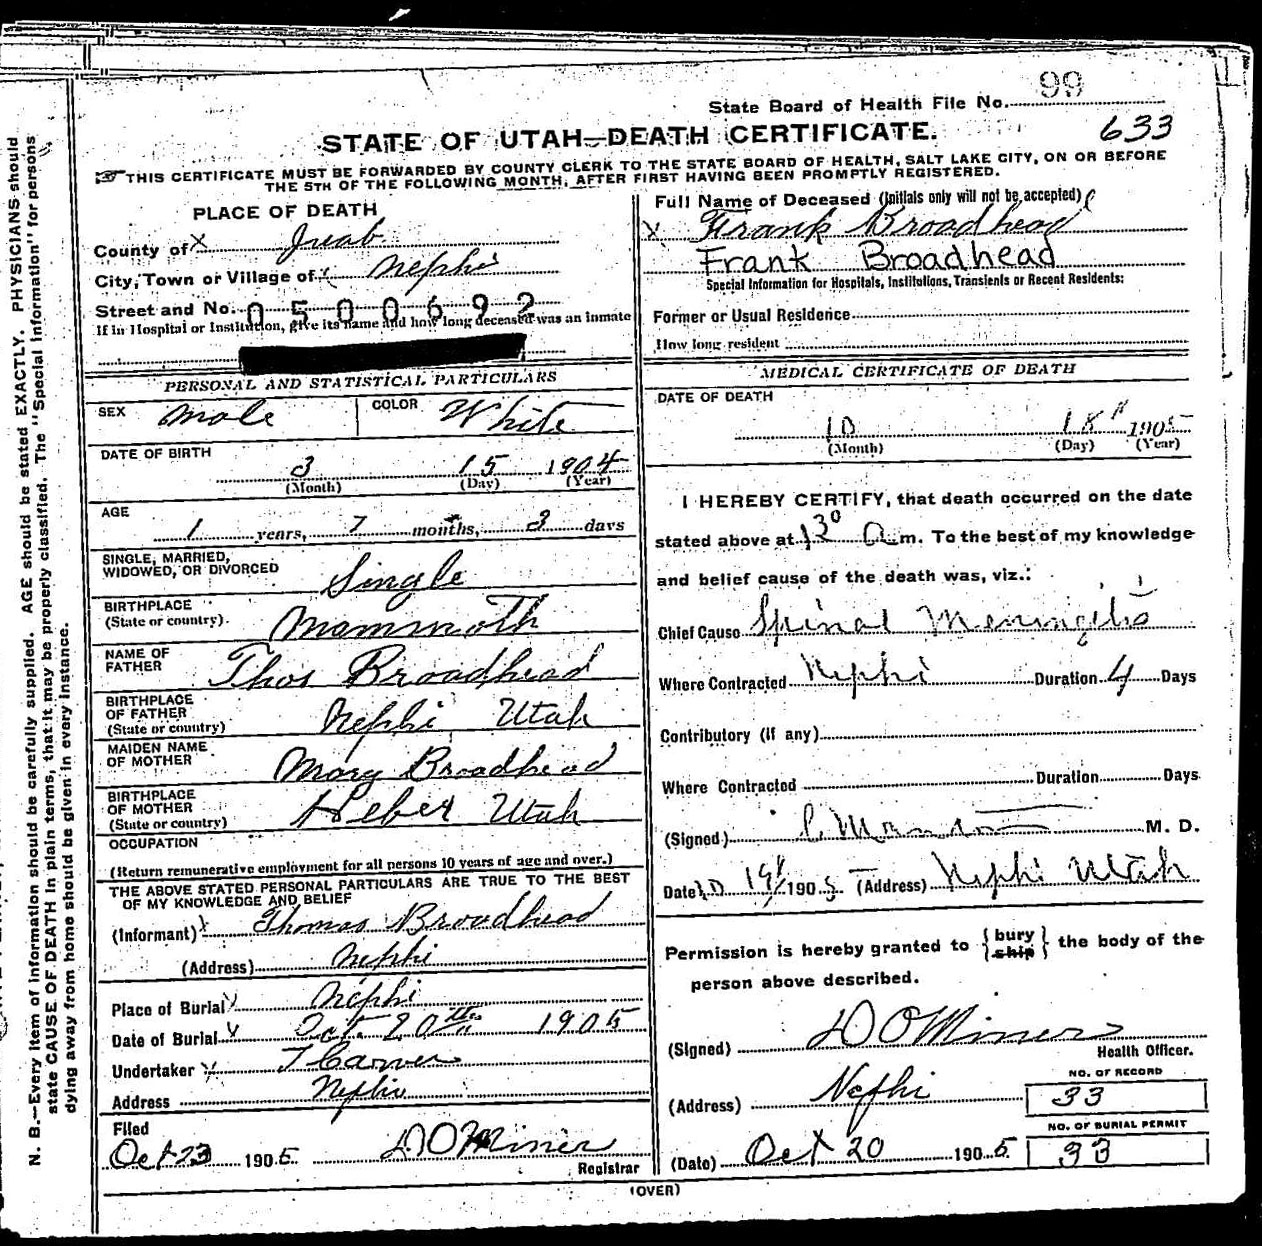 99
State Board of Health File No.
STATE OF UTAH—DEATH CERTIFICATE.
633
THIS CERTIFICATE MUST BE FORWARDED BY COUNTY CLERK TO THE STATE BOARD OF HEALTH, SALT LAKE CITY, ON OR BEFORE
THE 5TH OF THE FOLLOWING MONTH, AFTER FIRST HAVING BEEN PROMPTLY REGISTERED.
PLACE OF DEATH
County of X Juab
City, Town or Village of Nephi
Street and No. 0500692
If in Hospital or Institution, give its name and how long deceased was an inmate
PERSONAL AND STATISTICAL PARTICULARS
SEX Male COLOR White
DATE OF BIRTH
3 15 1904
(Month) (Day) (Year)
AGE
1 years, 7 months, 3 days
SINGLE, MARRIED,
WIDOWED, OR DIVORCED Single
BIRTHPLACE
(State or country). Mammoth
NAME OF
FATHER Thos Broadhead
BIRTHPLACE
OF FATHER
(State or country) Nephi Utah
MAIDEN NAME
OF MOTHER Mary Broadhead
BIRTHPLACE
OF MOTHER
(State or country) Heber Utah
OCCUPATION
(Return remunerative employment for all persons 10 years of age and over.)
THE ABOVE STATED PERSONAL PARTICULARS ARE TRUE TO THE BEST
OF MY KNOWLEDGE AND BELIEF
(Informant) Thomas Broadhead
(Address) Nephi
Place of Burial Nephi
Date of Burial Oct. 20th 1905
Undertaker
Address Nephi
Filed
Oct 23 1905 D O Miner
Registrar
Full Name of Deceased (Initials only will not be accepted)
X Frank Broadhead
Frank Broadhead
Special Information for Hospitals, Institutions, Transients or Recent Residents:
Former or Usual Residence
How long resident
MEDICAL CERTIFICATE OF DEATH
DATE OF DEATH
10 18" 1905
(Month) (Day) (Year)
I HEREBY CERTIFY, that death occurred on the date
stated above at 1 30 A m. To the best of my knowledge
and belief cause of the death was, viz.:
Chief Cause Spinal Meningitis
Where Contracted Nephi Duration 4 Days
Contributory (if any)
Where Contracted Duration Days
(Signed) M. D.
Date 10 19 1905. (Address) Nephi Utah
Permission is hereby granted to {bury ship} the body of the
person above described.
(Signed) D O Miner
Health Officer.
(Address) Nephi
NO. OF RECORD
33
NO. OF BURIAL PERMIT
(Date) Oct 20 1905. 33
(OVER)
N. B.—Every item of information should be carefully supplied. AGE should be stated EXACTLY. PHYSICIANS should
state CAUSE OF DEATH in plain terms, that it may be properly classified. The "Special Information" for persons
dying away from home should be given in every instance.